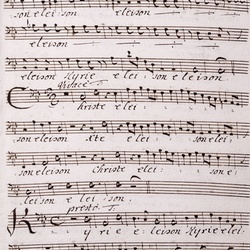 son eleison eleison
eleison
eleison Kyrie e lei: son eleison
Vivace T.
Christe elei:
son eleison Xte e lei: son elei:
son eleison Christe elei: sone:
leison e lei: son.
presto T.
Kyrie e: leison Kyrie elei